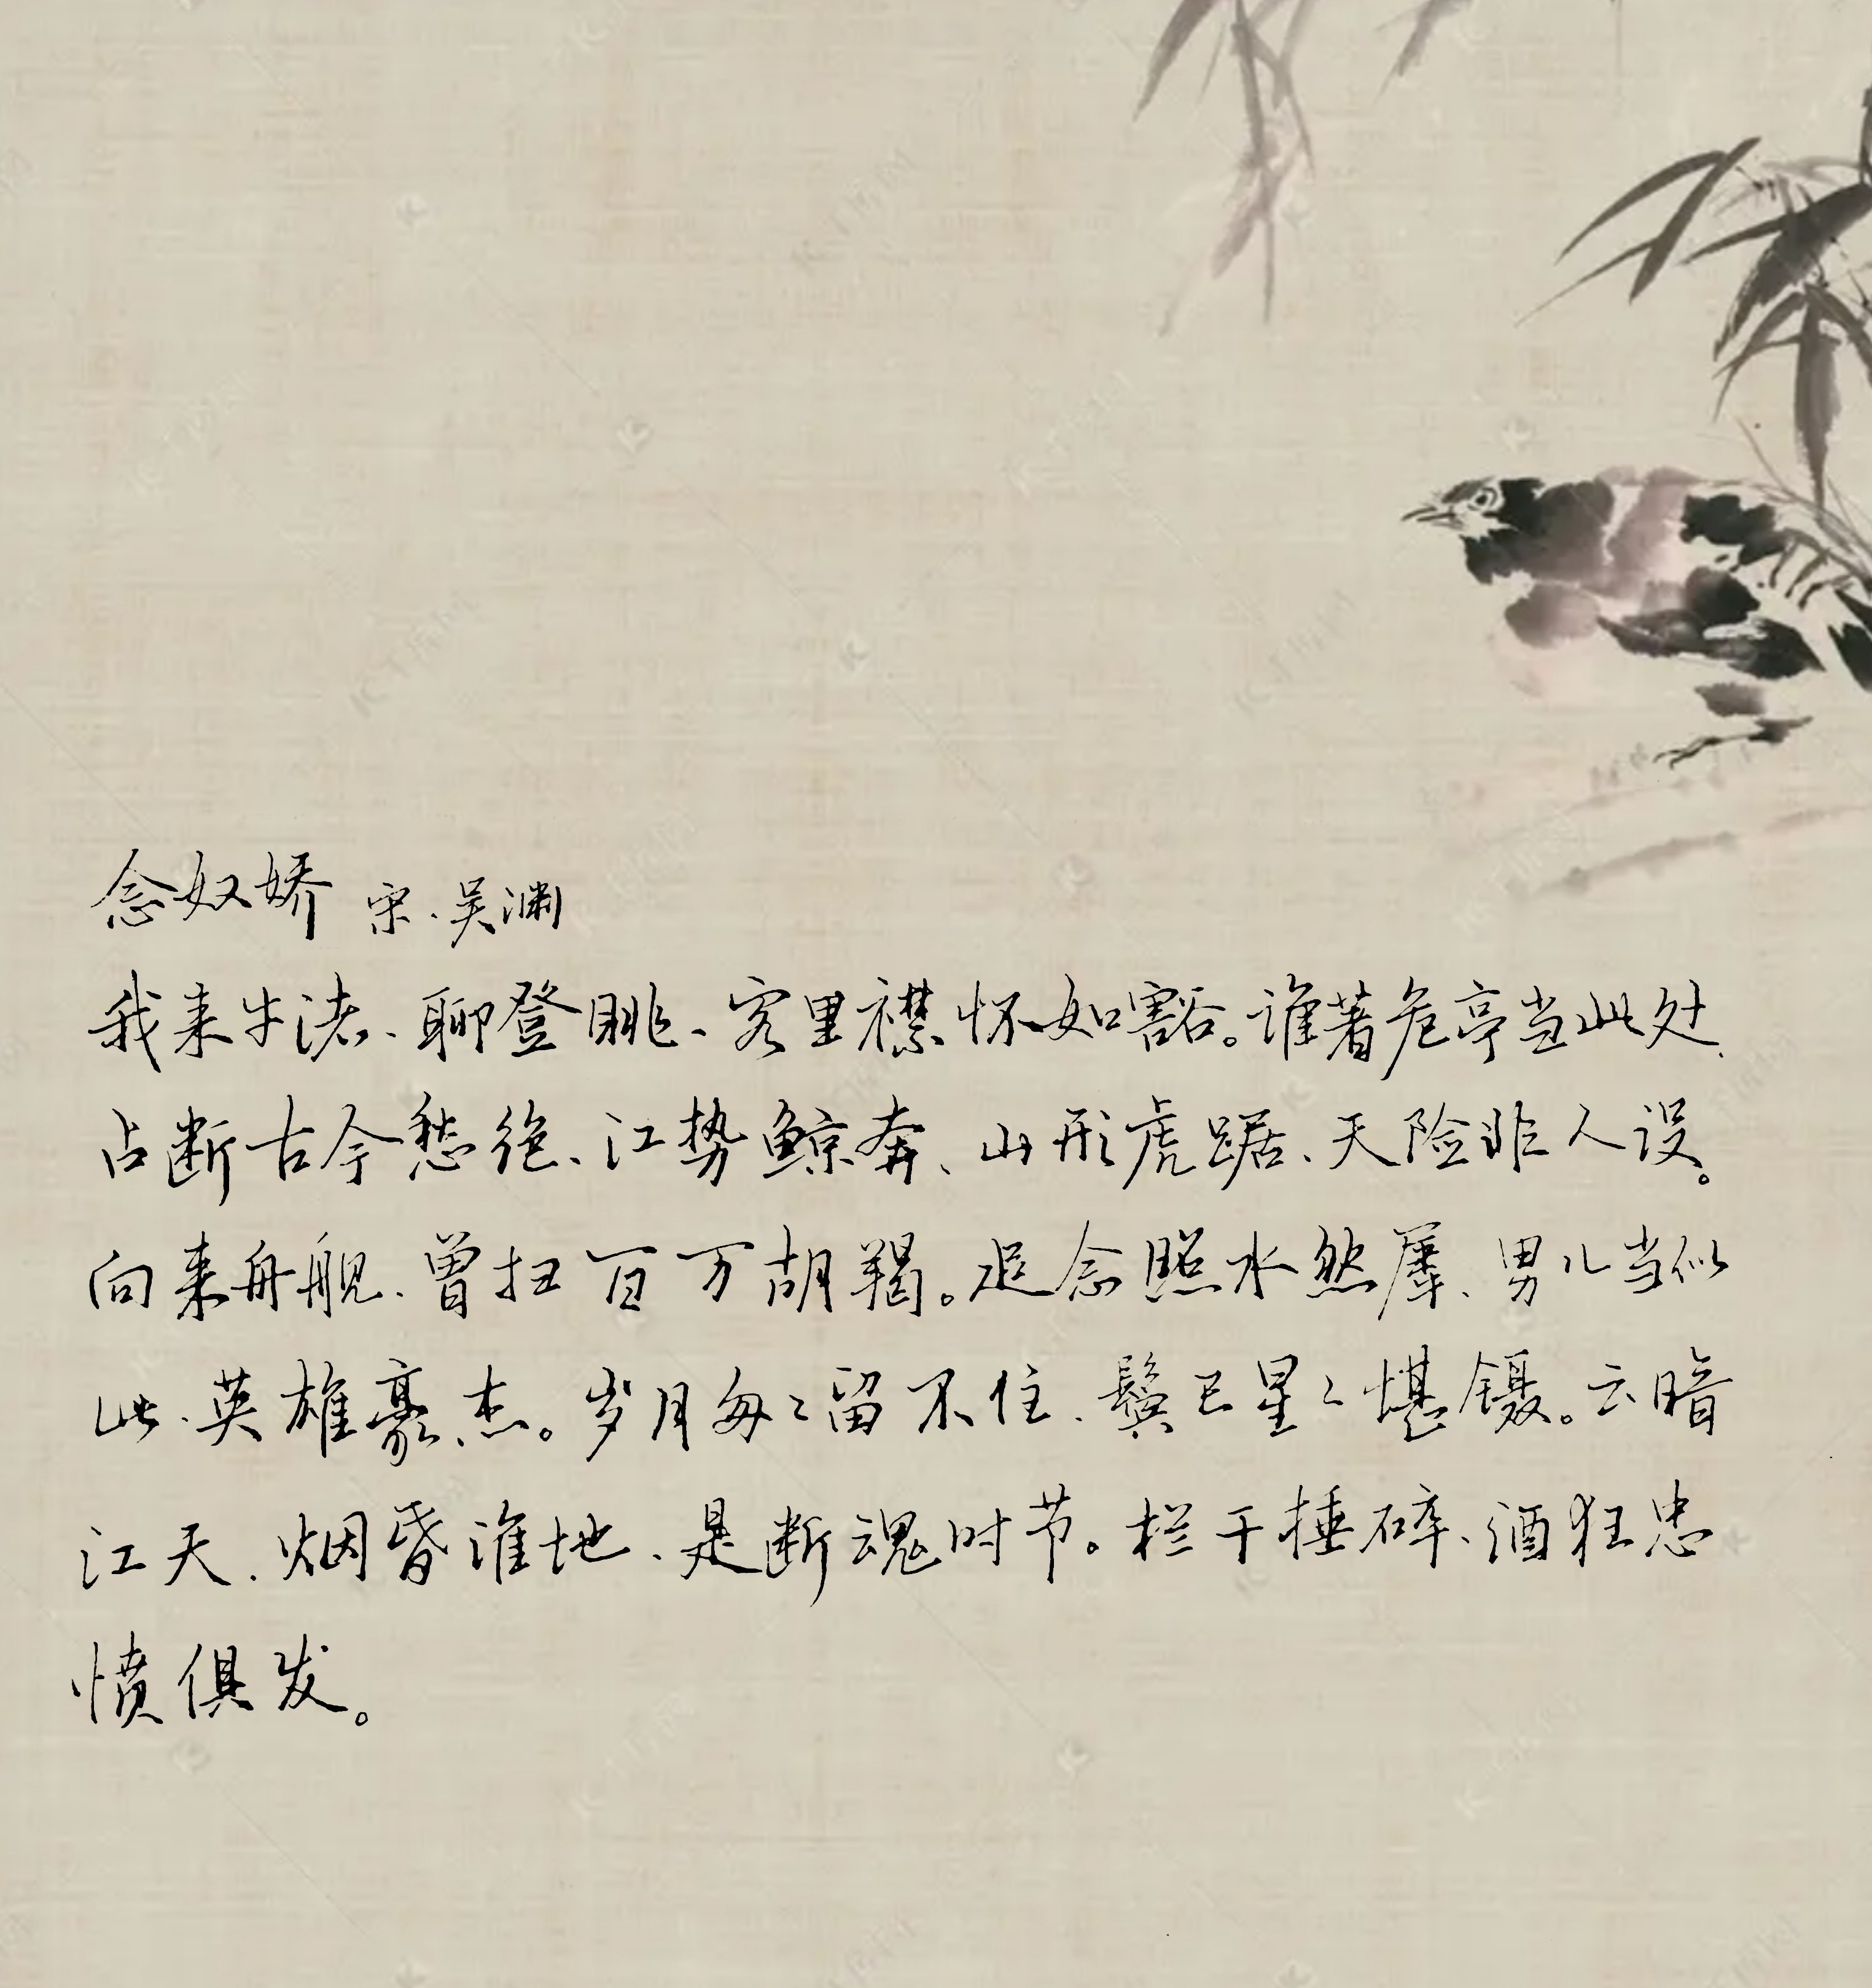 念奴娇 宋.吴渊
我来牛渚、聊登眺、客里襟怀如豁。谁著危亭当此处、
占断古今愁绝、江势鲸奔、山形虎踞、天险非人设。
向来舟舰、曾扫百万胡羯。追念照水然犀、男儿当似
此、英雄豪杰。岁月匆匆留不住、鬓已星星堪镊。云暗
江天、烟昏淮地、是断魂时节。栏干捶碎、酒狂忠
愤俱发。